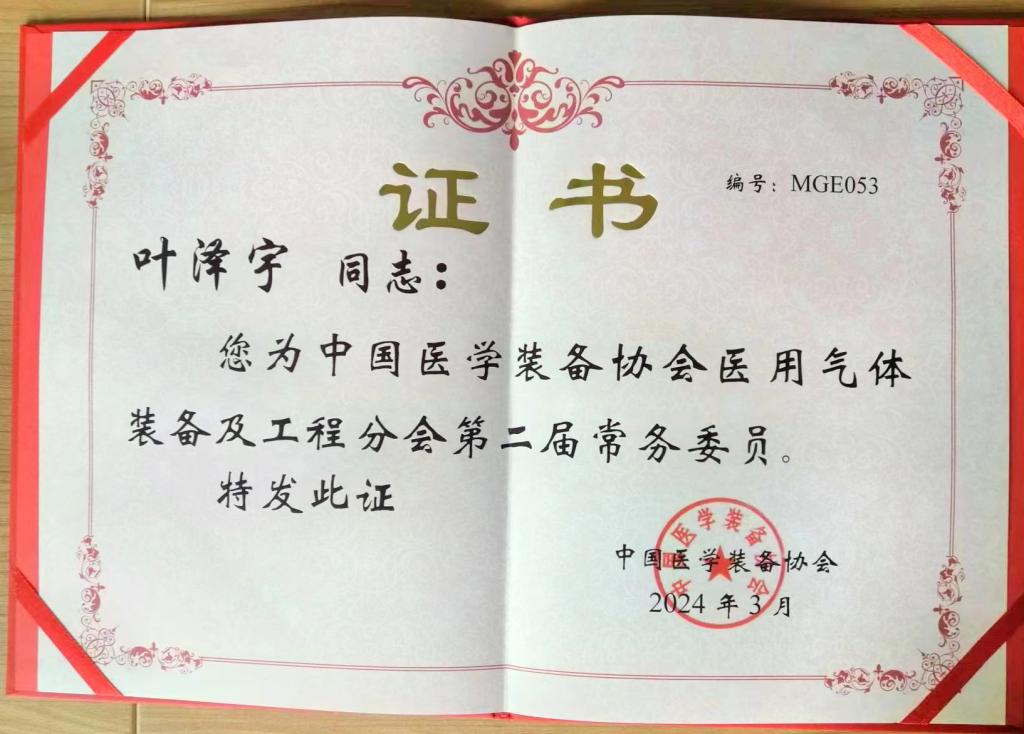 证书
编号：MGE053
叶泽宇 同志：
您为中国医学装备协会医用气体
装备及工程分会第二届常务委员。
特发此证
中国医学装备协会
中国医学装备协会
2024年3月